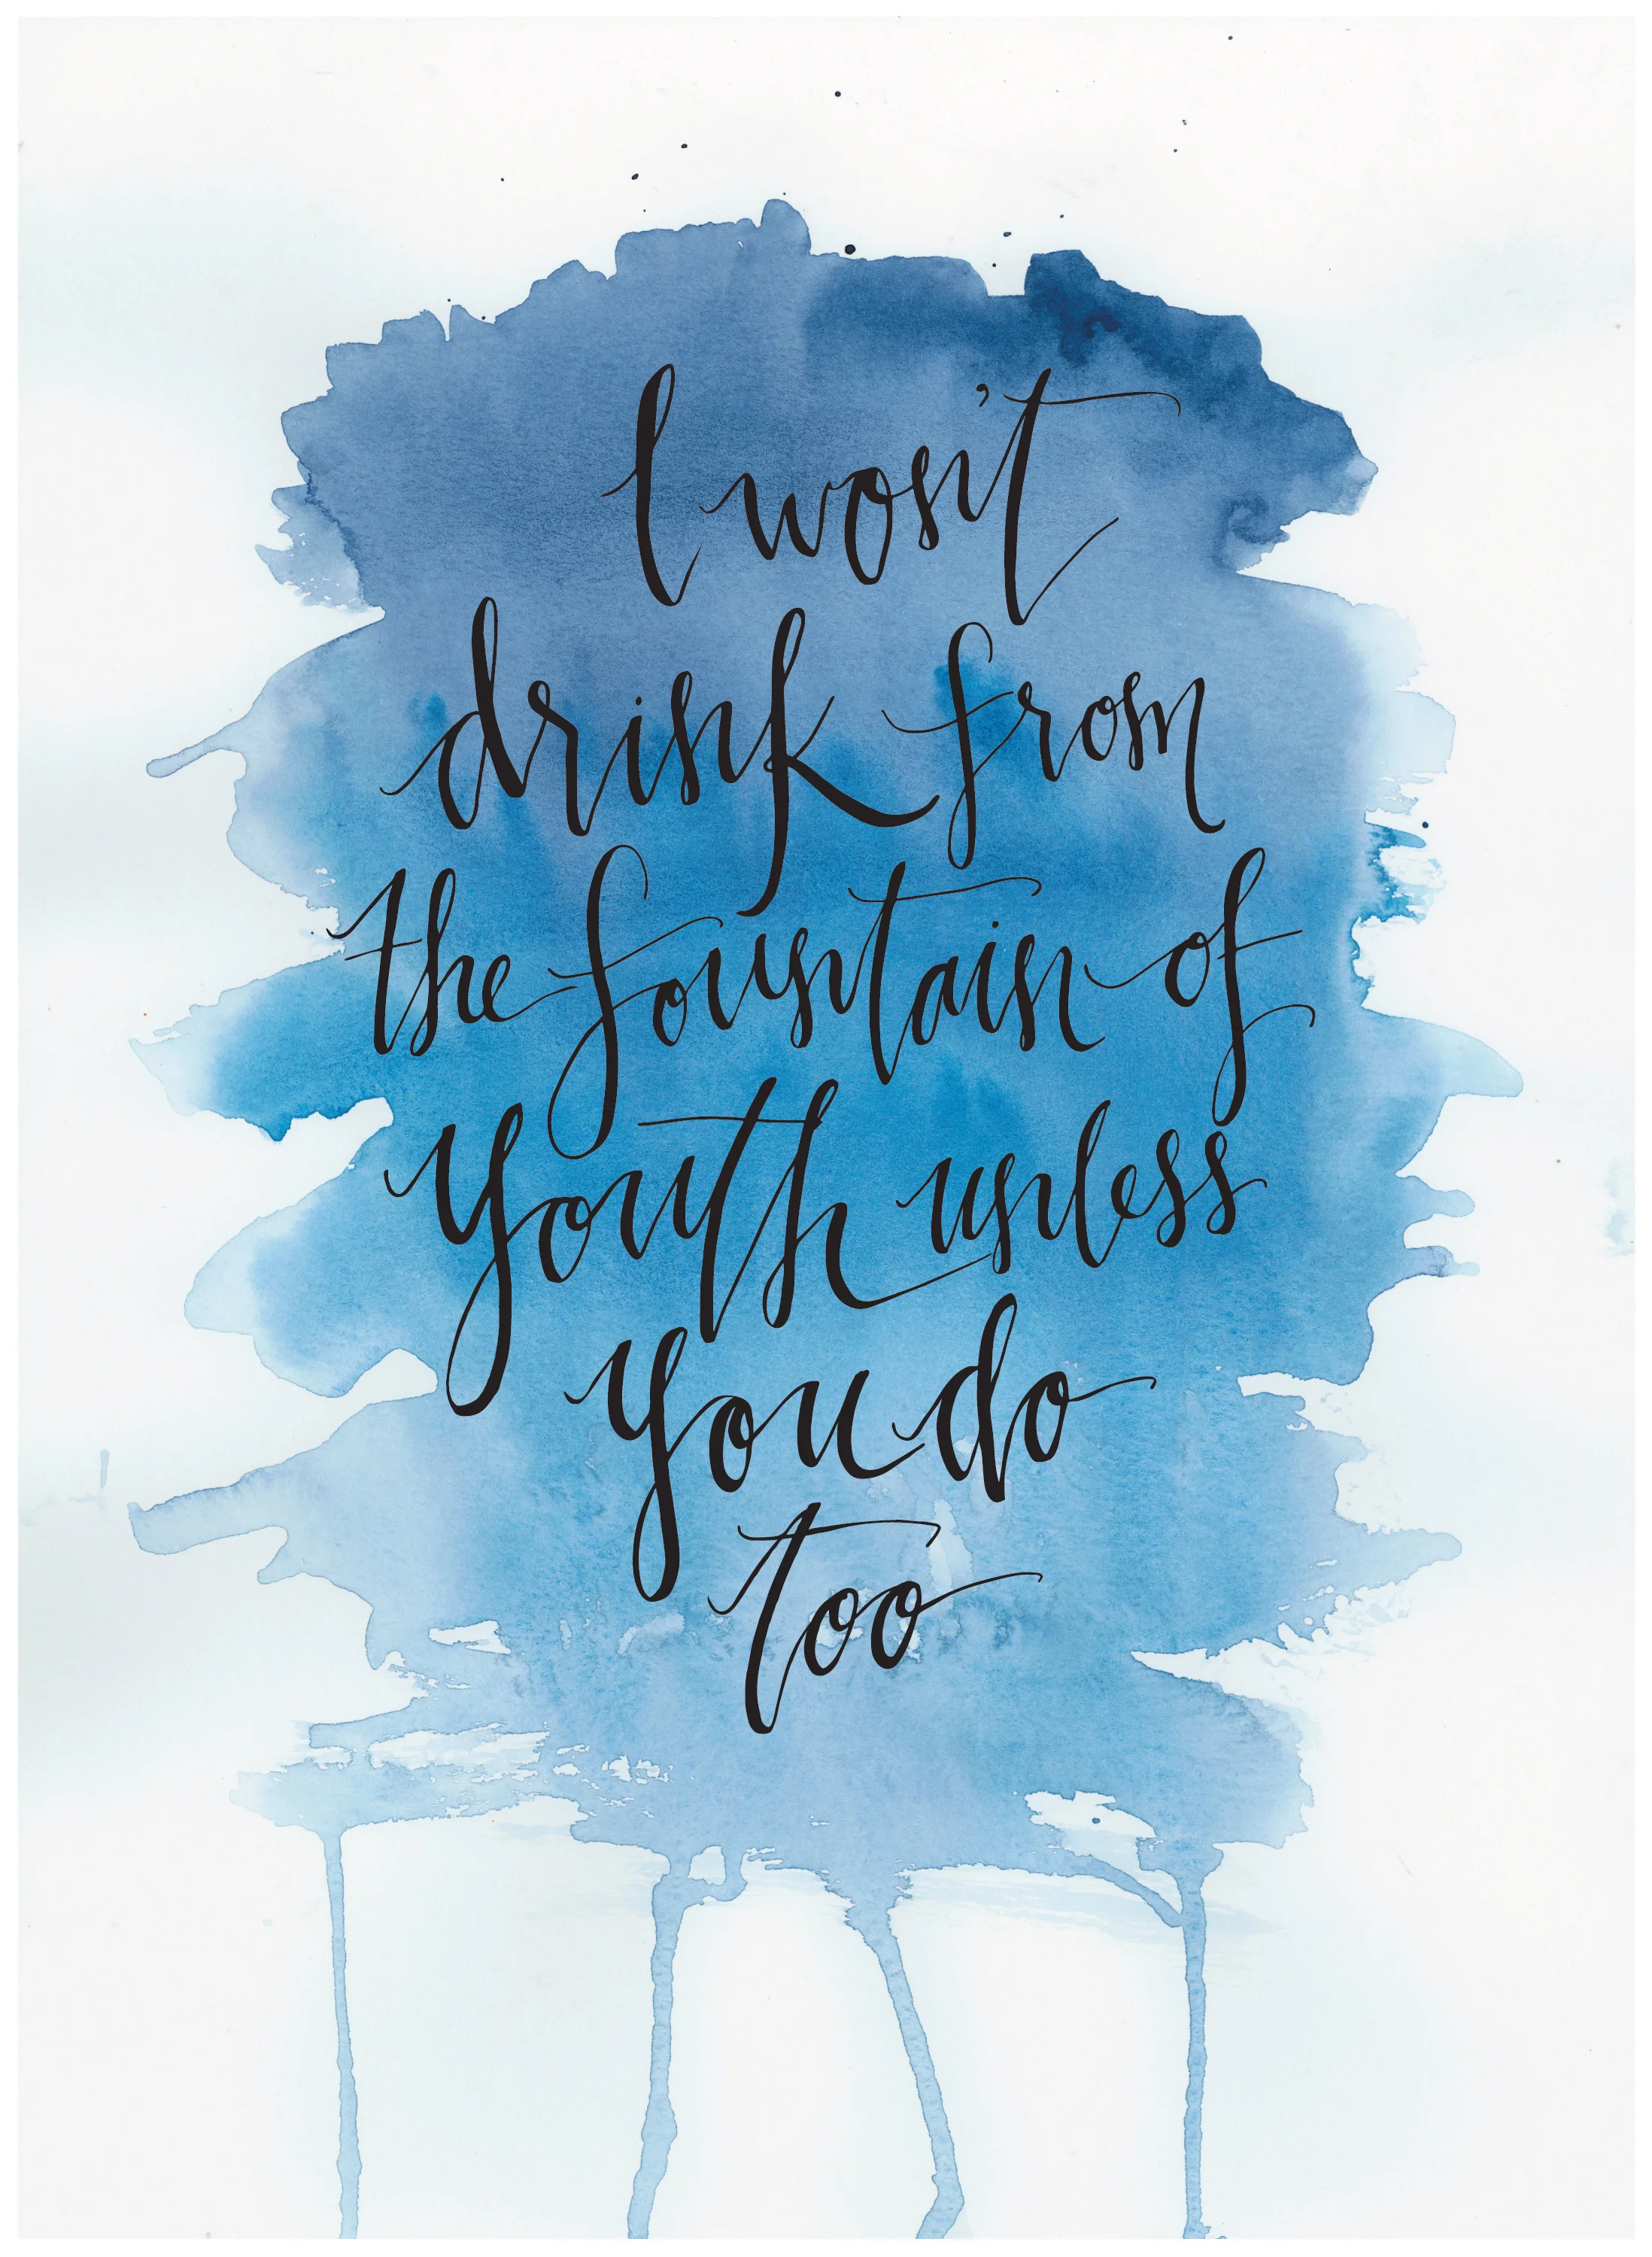 I won't
drink from
the fountain of
youth unless
you do
too